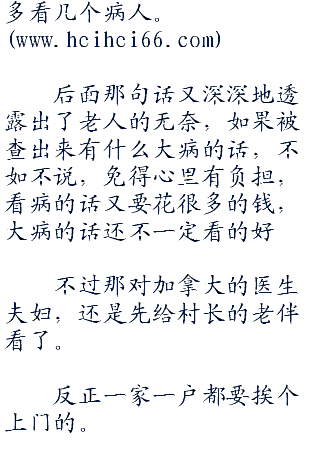 多看几个病人。
(www.hcihci66.com)
后面那句话又深深地透
露出了老人的无奈，如果被
查出来有什么大病的话，不
如不说，免得心里有负担，
看病的话又要花很多的钱，
大病的话还不一定看的好
不过那对加拿大的医生
夫妇，还是先给村长的老伴
看了。
反正一家一户都要挨个
上门的。